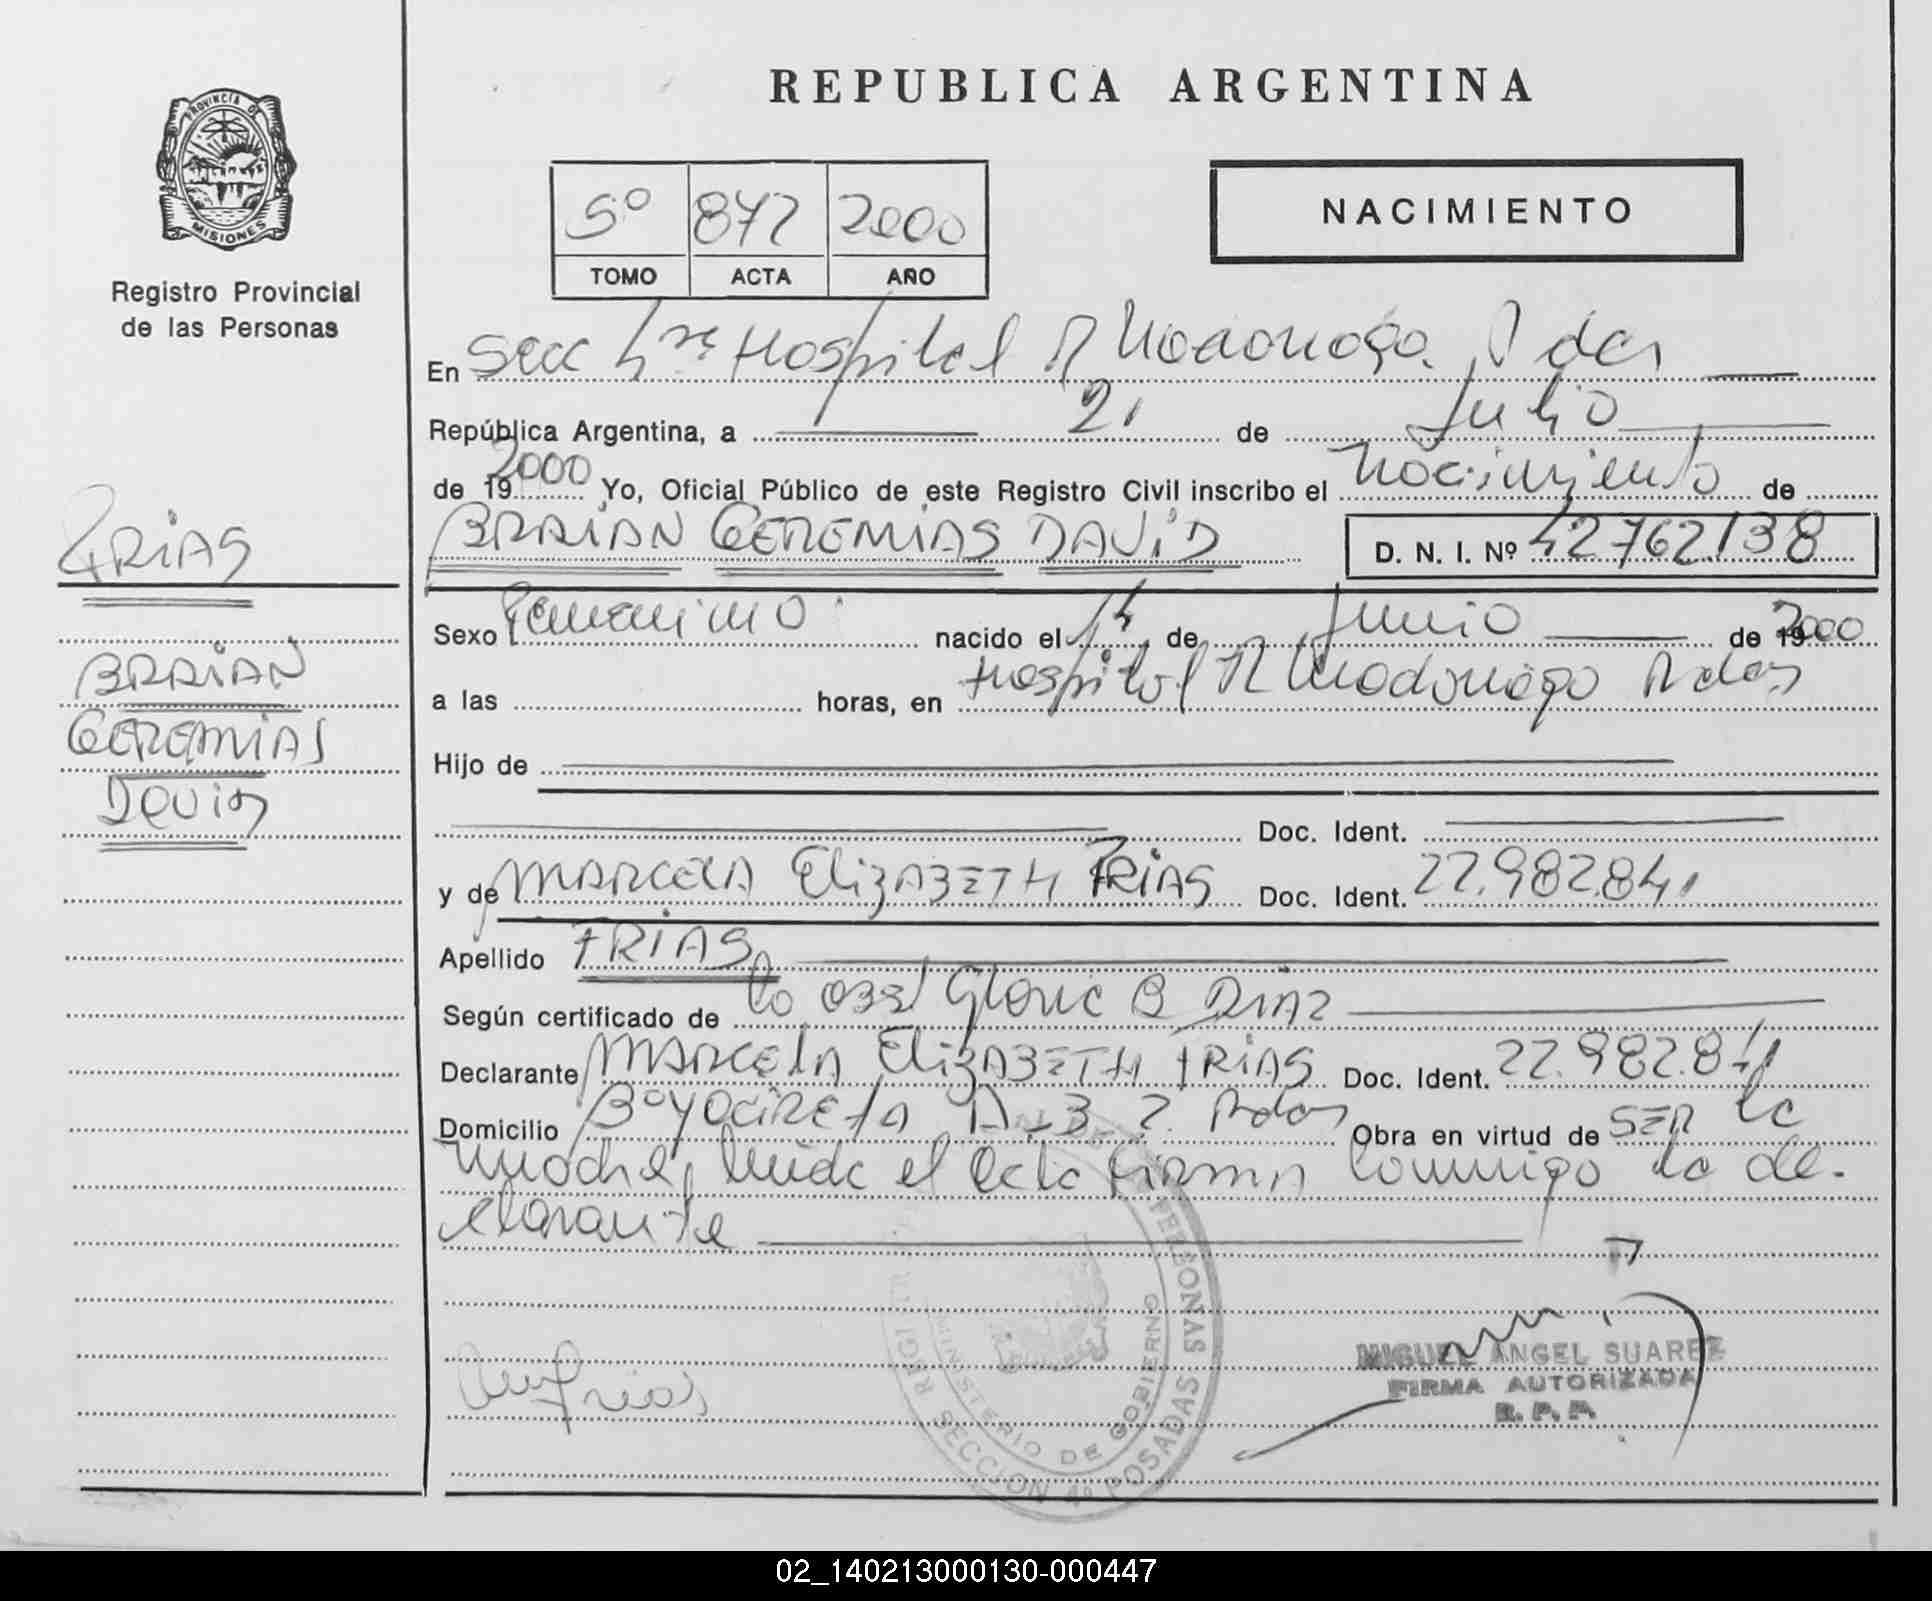 REPUBLICA ARGENTINA
PROVINCIA DE
MISIONES
Registro Provincial
de las Personas
5º 872 2000
TOMO ACTA AÑO
NACIMIENTO
En Secc 4ª Hospital R Madariaga Pdas
República Argentina, a 21 de Julio
de 19 2000 Yo, Oficial Público de este Registro Civil inscribo el nacimiento de
BRAIAN GEREMIAS DAVID D. N. I. Nº 42762138
FRIAS
BRAIAN
GEREMIAS
David
Sexo Femenino nacido el 14 de Junio de 19 2000
a las horas, en Hospital R Madariaga Pdas
Hijo de
Doc. Ident.
y de MARCELA ELIZABETH FRIAS Doc. Ident. 22.982.841
Apellido FRIAS
Según certificado de la Gloria B DIAZ
Declarante MARCELA ELIZABETH FRIAS Doc. Ident. 22.982.841
Domicilio Pdas Obra en virtud de SER la
madre, leída el acta firma conmigo la de-
clarante
Frias
MINISTERIO DE GOBIERNO
PERSONAS
SECCION 4ª POSADAS
MIGUEL ANGEL SUAREZ
FIRMA AUTORIZADA
R. P. P.
02_140213000130-000447